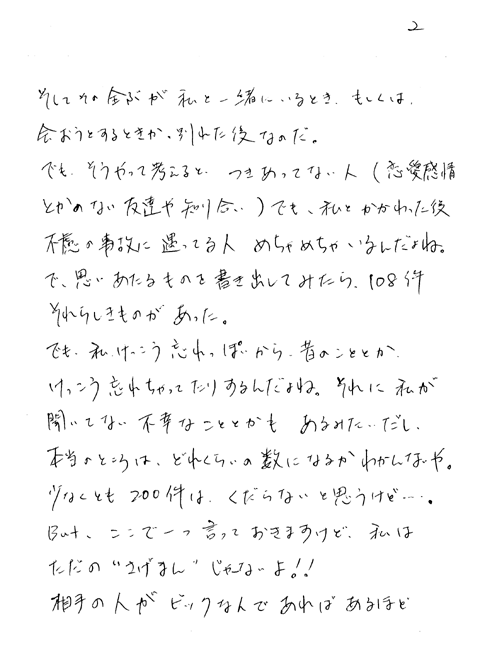 2
そしてその全ぶが私と一緒にいるとき、もしくは、
会おうとするときか、別れた後なのだ。
でも、そうやって考えると、つきあってない人（恋愛感情
とかのない友達や知り合い）でも、私とかかわった後
不慮の事故に遇ってる人 めちゃめちゃいるんだよね。
で、思いあたるものを書き出してみたら、108件
それらしきものがあった。
でも、私、けっこう忘れっぽいから、昔のこととか、
けっこう忘れちゃってたりするんだよね。それに私が
聞いてない不幸なこととかも あるみたいだし、
本当のところは、どれくらいの数になるかわかんないや。
少なくとも 200件は、くだらないと思うけど…。
But、ここで一つ言っておきますけど、私は
ただの“さげまん”じゃないよ!!
相手の人がビックな人であればあるほど